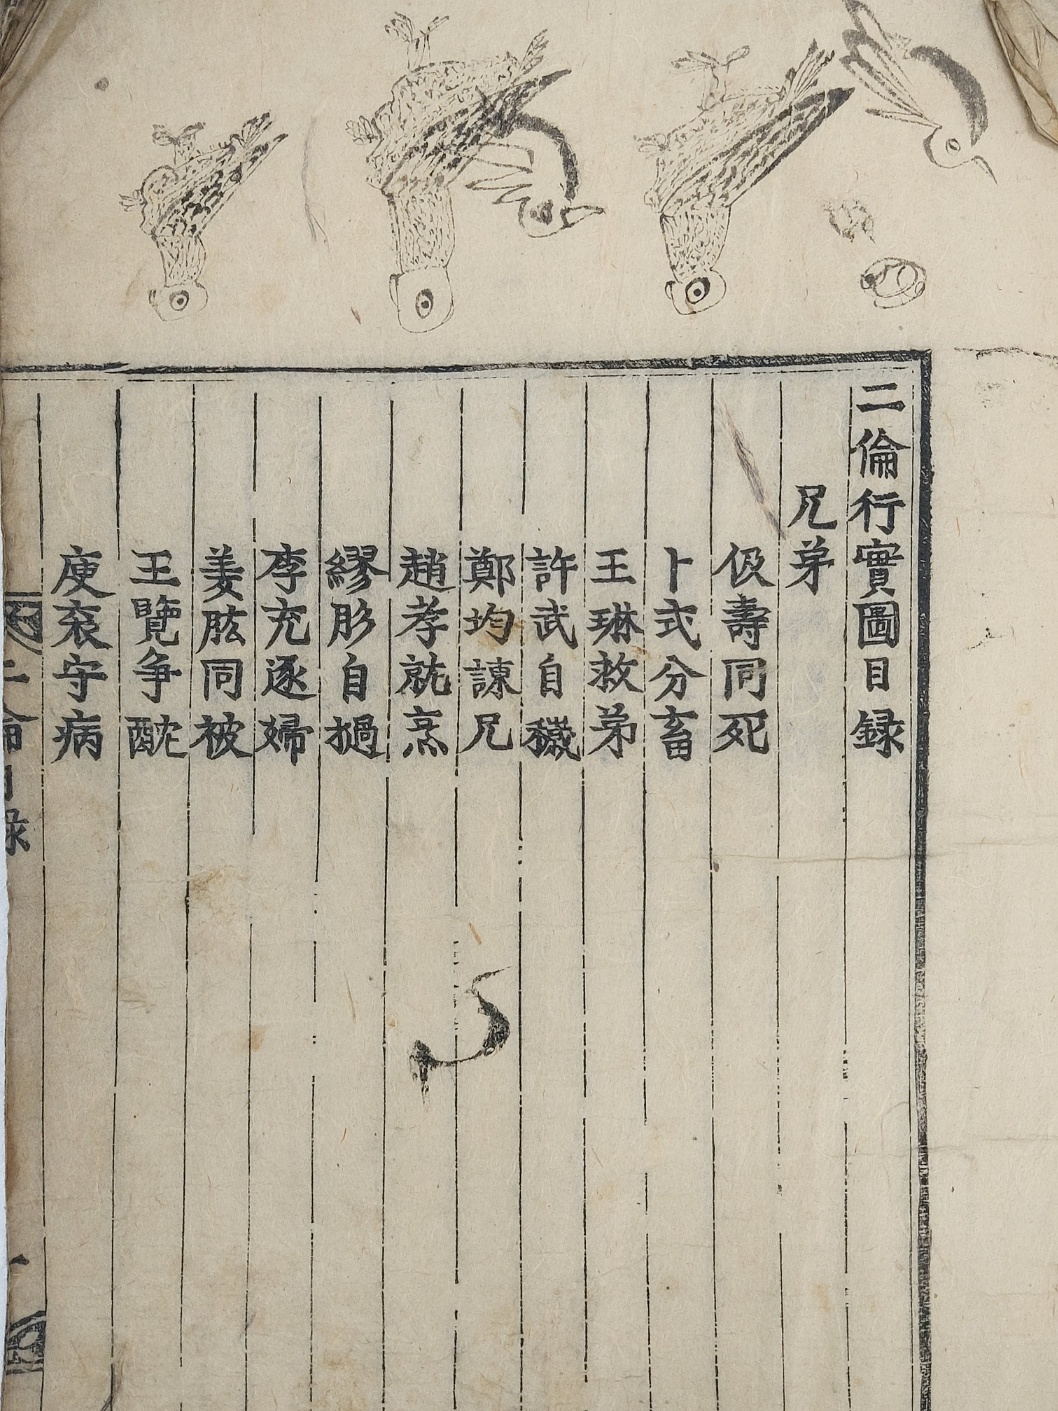 二倫行實圖目録
兄弟
伋壽同死
卜式分畜
王琳救弟
許武自穢
鄭均諫兄
趙孝就烹
繆肜自撾
李充逐婦
姜肱同被
王覽争酖
庾衮守病